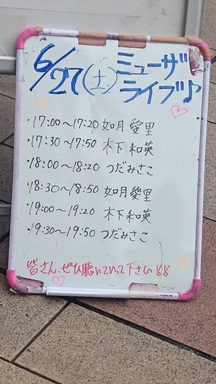 6/27(土) ミューザ
ライブ♪
・17:00～17:20 如月愛里
・17:30～17:50 木下和英
・18:00～18:20 つだみさこ
・18:30～18:50 如月愛里
・19:00～19:20 木下和英
・19:30～19:50 つだみさこ
皆さん、ぜひ聴いていって下さい♪♪